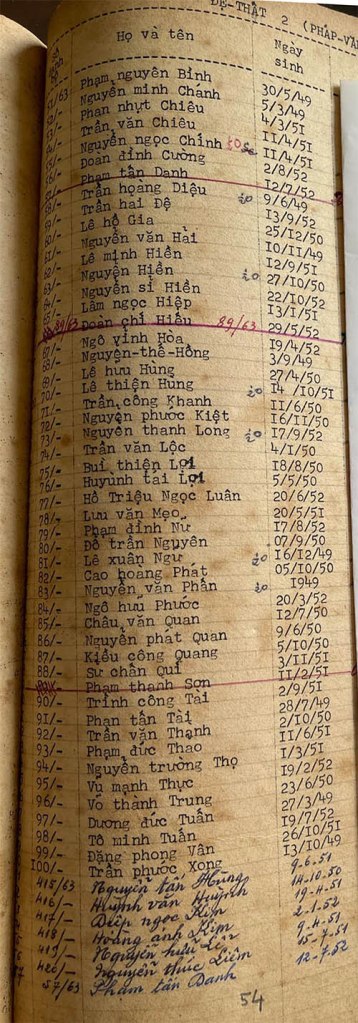 ĐỆ-THẤT 2 (PHÁP-VĂ
Họ và tên Ngày sinh
51/63 Phạm nguyên Bỉnh 30/5/49
52/- Nguyễn minh Chánh 5/3/49
53/- Phan nhựt Chiêu 4/3/5I
54/- Trần văn Chiêu II/4/5I
55/- Nguyễn ngọc Chính II/4/5I
56/- Đoàn đình Cường 2/8/52
57/- Phạm tấn Danh I2/7/52
58/- Trần hoàng Diệu 9/6/49
59/- Trần hai Đệ I3/9/52
60/- Lê hồ Gia 25/I2/50
61/- Nguyễn văn Hai I0/II/49
62/- Lê minh Hiền I2/9/5I
63/- Nguyễn Hiền 27/I0/50
64/- Nguyễn sĩ Hiền 22/I0/52
65/- Lâm ngọc Hiệp I3/I/5I
89/63 Đoàn chí Hiếu 89/63 29/5/52
67/- Ngô vĩnh Hòa I9/4/52
68/- Nguyễn-thế-Hồng 3/9/49
69/- Lê hưu Hùng 27/4/50
70/- Lê thiện Hung I4 /I0/5I
7I/- Trần công Khanh II/6/50
72/- Nguyễn phước Kiệt I6/II/50
73/- Nguyễn thanh Long I7/9/52
74/- Trần văn Lộc 4/I/50
75/- Bùi thiện Lợi I8/8/50
76/- Huỳunh tài Lợi 5/5/50
77/- Hồ Triệu Ngọc Luân 20/6/52
78/- Lưu văn Mẹo 20/5/5I
79/- Phạm đình Nữ I7/8/52
80/- Đỗ trần Nguyên 07/9/50
8I/- Lê xuân Ngự I6/I2/49
82/- Cao hoàng Phát 05/I0/50
83/- Nguyễn văn Phấn I949
84/- Ngô hưu Phước 20/3/52
85/- Châu văn Quan I2/7/50
86/- Nguyễn phát Quan 9/6/50
87/- Kiều công Quang 5/I0/50
88/- Sư chấn Quí 3/II/5I
Phạm thanh Sơn II/2/5I
90/- Trịnh công Tài 2/9/5I
9I/- Phan tấn Tài 28/7/49
92/- Trần văn Thạnh 2/I0/50
93/- Phạm đức Thao II/6/5I
94/- Nguyễn trường Thọ I/3/5I
95/- Vũ mạnh Thực I9/2/52
96/- Võ thanh Trung 23/6/50
97/- Dương đức Tuấn 27/3/49
98/- Tô minh Tuấn I9/7/52
99/- Đặng phong Vân 26/I0/5I
I00/- Trần phước Xong I3/I0/49
415/63 Nguyễn tấn Hùng 9.6.51
416/- Huỳnh văn Huỳnh 14.10.50
417/- Diệp ngọc Kim 19.4.51
418/- Hoàng ánh Kim 2.1.52
419/- Nguyễn hữu 9.4.51
420/- Nguyễn thúc Liêm 15.7.51
57/63 Phạm tấn Danh 12.7.52
54